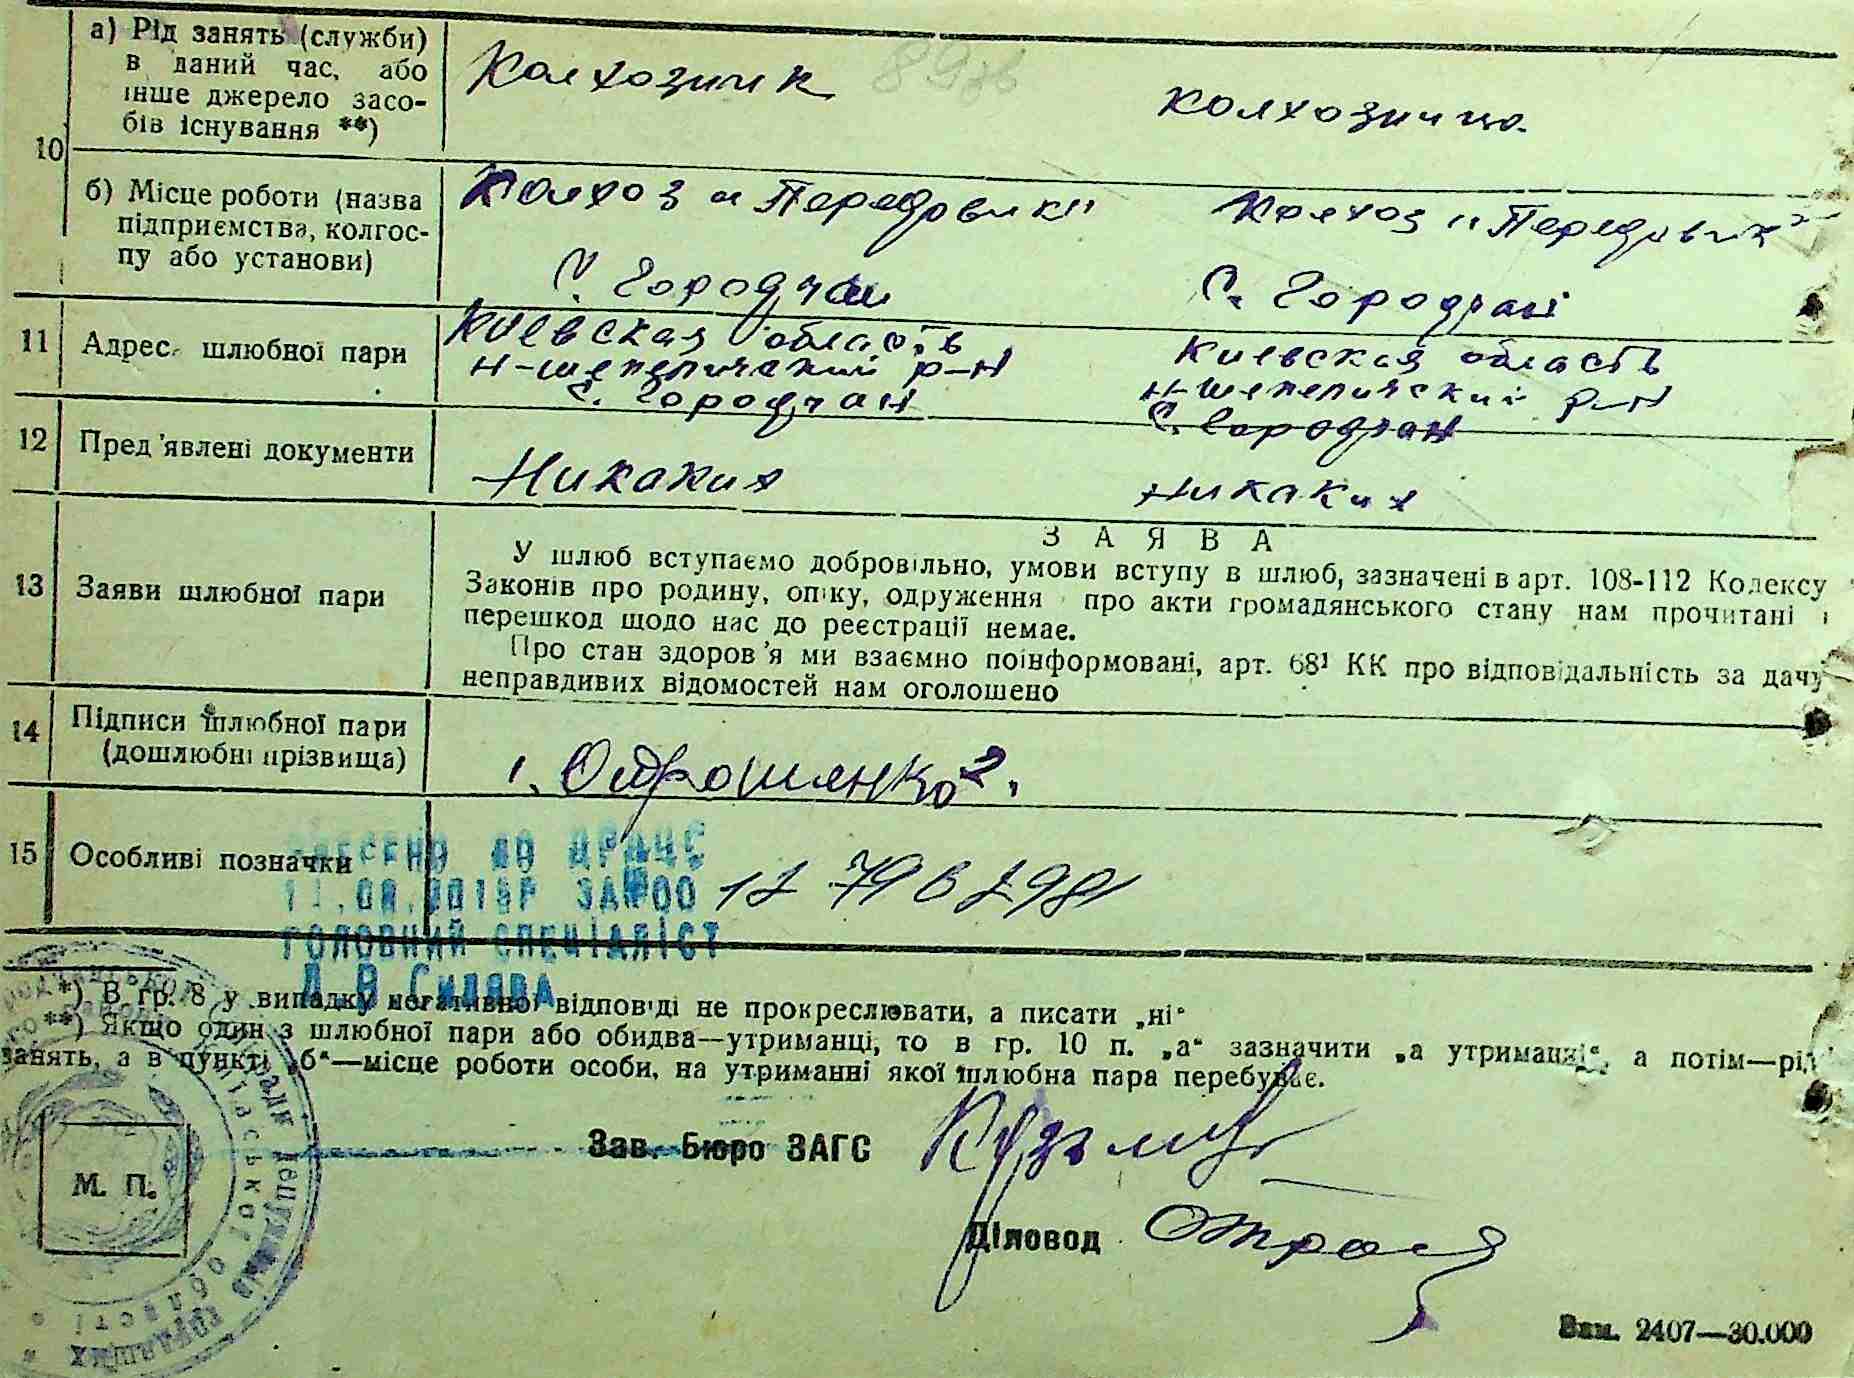 10 а) Рід занять (служби)
в даний час, або
інше джерело засо-
бів існування **)
Колхозник
колхозница
б) Місце роботи (назва
підприємства, колгос-
пу або установи)
Колхоз "Передовик"
с. Городчан
Колхоз "Передовик"
с. Городчан
11 Адрес шлюбної пари
Киевская область
Н-шепеличский р-н
с. Городчан
Киевская область
Н-шепеличский р-н
с. Городчан
12 Пред'явлені документи
Никаких
Никаких
13 Заяви шлюбної пари
ЗАЯВА
У шлюб вступаємо добровільно, умови вступу в шлюб, зазначені в арт. 108-112 Кодексу
Законів про родину, опіку, одруження про акти громадянського стану нам прочитані і
перешкод щодо нас до реєстрації немає.
Про стан здоров'я ми взаємно поінформовані, арт. 68¹ КК про відповідальність за дачу
неправдивих відомостей нам оголошено
14 Підписи шлюбної пари
(дошлюбні прізвища)
1. 2.
15 Особливі позначки
ВНЕСЕНО ДО ДРАЦС
ЗА №00
ГОЛОВНИЙ СПЕЦІАЛІСТ
*) В гр. 8 у випадку негативної відповіді не прокреслювати, а писати „ні“
**) Якщо один з шлюбної пари або обидва—утриманці, то в гр. 10 п. „а“ зазначити „а утриманні“, а потім—рід
занять, а в пункті „б“—місце роботи особи, на утриманні якої шлюбна пара перебуває.
Зав. Бюро ЗАГС
М. П.
Діловод
Зам. 2407—30.000